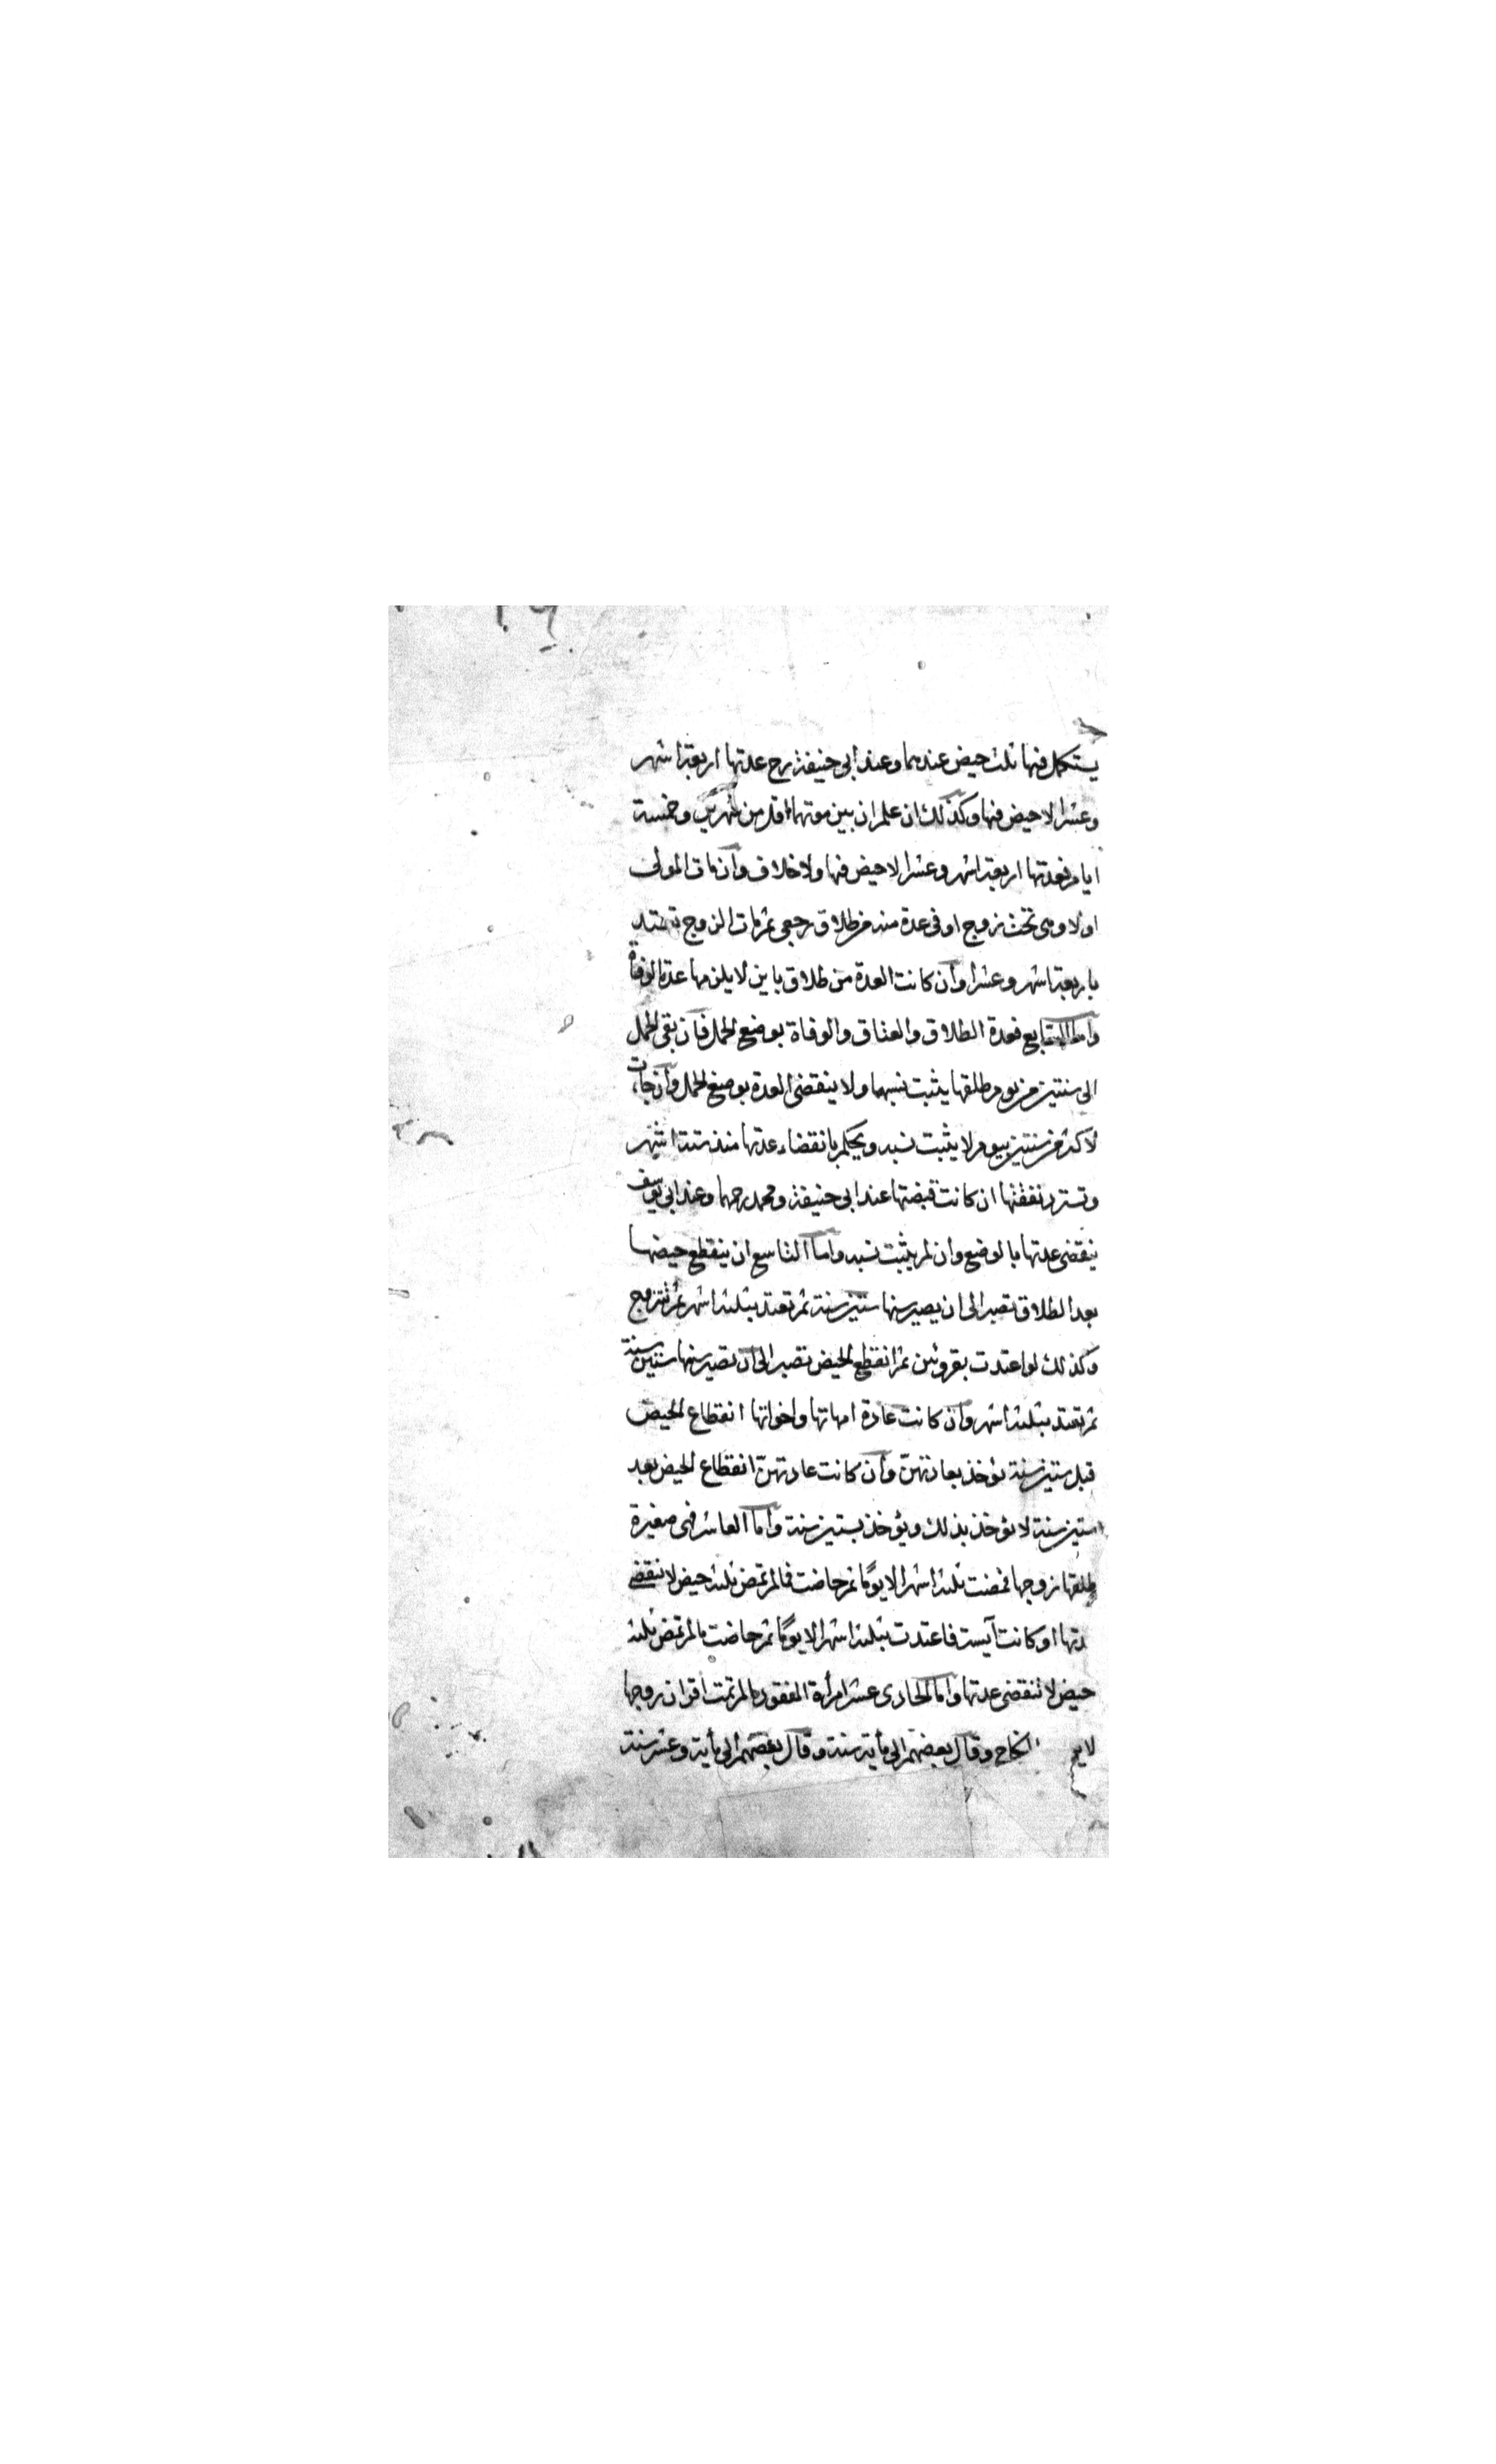 يستكمل فيها ثلث حيض عندهما وعند ابى حنيفة رح عدتها اربعة اشهر
وعشرا لا حيض فيها وكذلك ان علم ان بين موتهما اقل من شهرين وخمسة
ايام فعدتها اربعة اشهر وعشرا لا حيض فيها ولا خلاف وان مات المولى
اولا وهى تحت زوج او فى عدة منه من طلاق رجعى ثم مات الزوج تعتد
باربعة اشهر وعشرا وان كانت العدة من طلاق باين لا يلزمها عدة الوفاة
واما السابع فعدة الطلاق والعتاق والوفاة بوضع الحمل فان بقى الحمل
الى سنتين من يوم طلقها يثبت نسبهما ولا ينقضى العدة بوضع الحمل وان جاءت
لاكثر من سنتين بيوم لا يثبت نسبه ويحكم بانقضاء عدتها منذ ستة اشهر
وتسترد نفقتها ان كانت قبضتها عند ابى حنيفة ومحمد رحمهما وعند ابى يوسف
ينقضى عدتها بالوضع وان لم يثبت نسبه واما التاسع ان ينقطع حيضها
بعد الطلاق تصبر الى ان يصير سنها ستين سنة ثم تعتد بثلثة اشهر ثم تتزوج
وكذلك لو اعتدت بقروئين ثم انقطع الحيض تصبر الى ان تصير سنها ستين سنة
ثم تعتد بثلثة اشهر وان كانت عادة امهاتها واخواتها انقطاع الحيض
قبل ستين سنة يؤخذ بعادتهنّ وان كانت عادتهنّ انقطاع الحيض بعد
ستين سنة لا يؤخذ بذلك ويؤخذ بستين سنة واما العاشر فهى صغيرة
طلقها زوجها فمضت ثلثة اشهر الا يومًا ثم حاضت فمالم تمض ثلثة حيض لا تنقضى
عدتها او كانت آيسة فاعتدت بثلثة اشهر الا يومًا ثم حاضت مالم تمض ثلثة
حيض لا تنقضى عدتها واما الحادى عشر امرأة المفقود مالم تمت اقران زوجها
لا النكاح وقال بعضهم الى مأية سنة وقال بعضهم الى مأية وعشر سنة